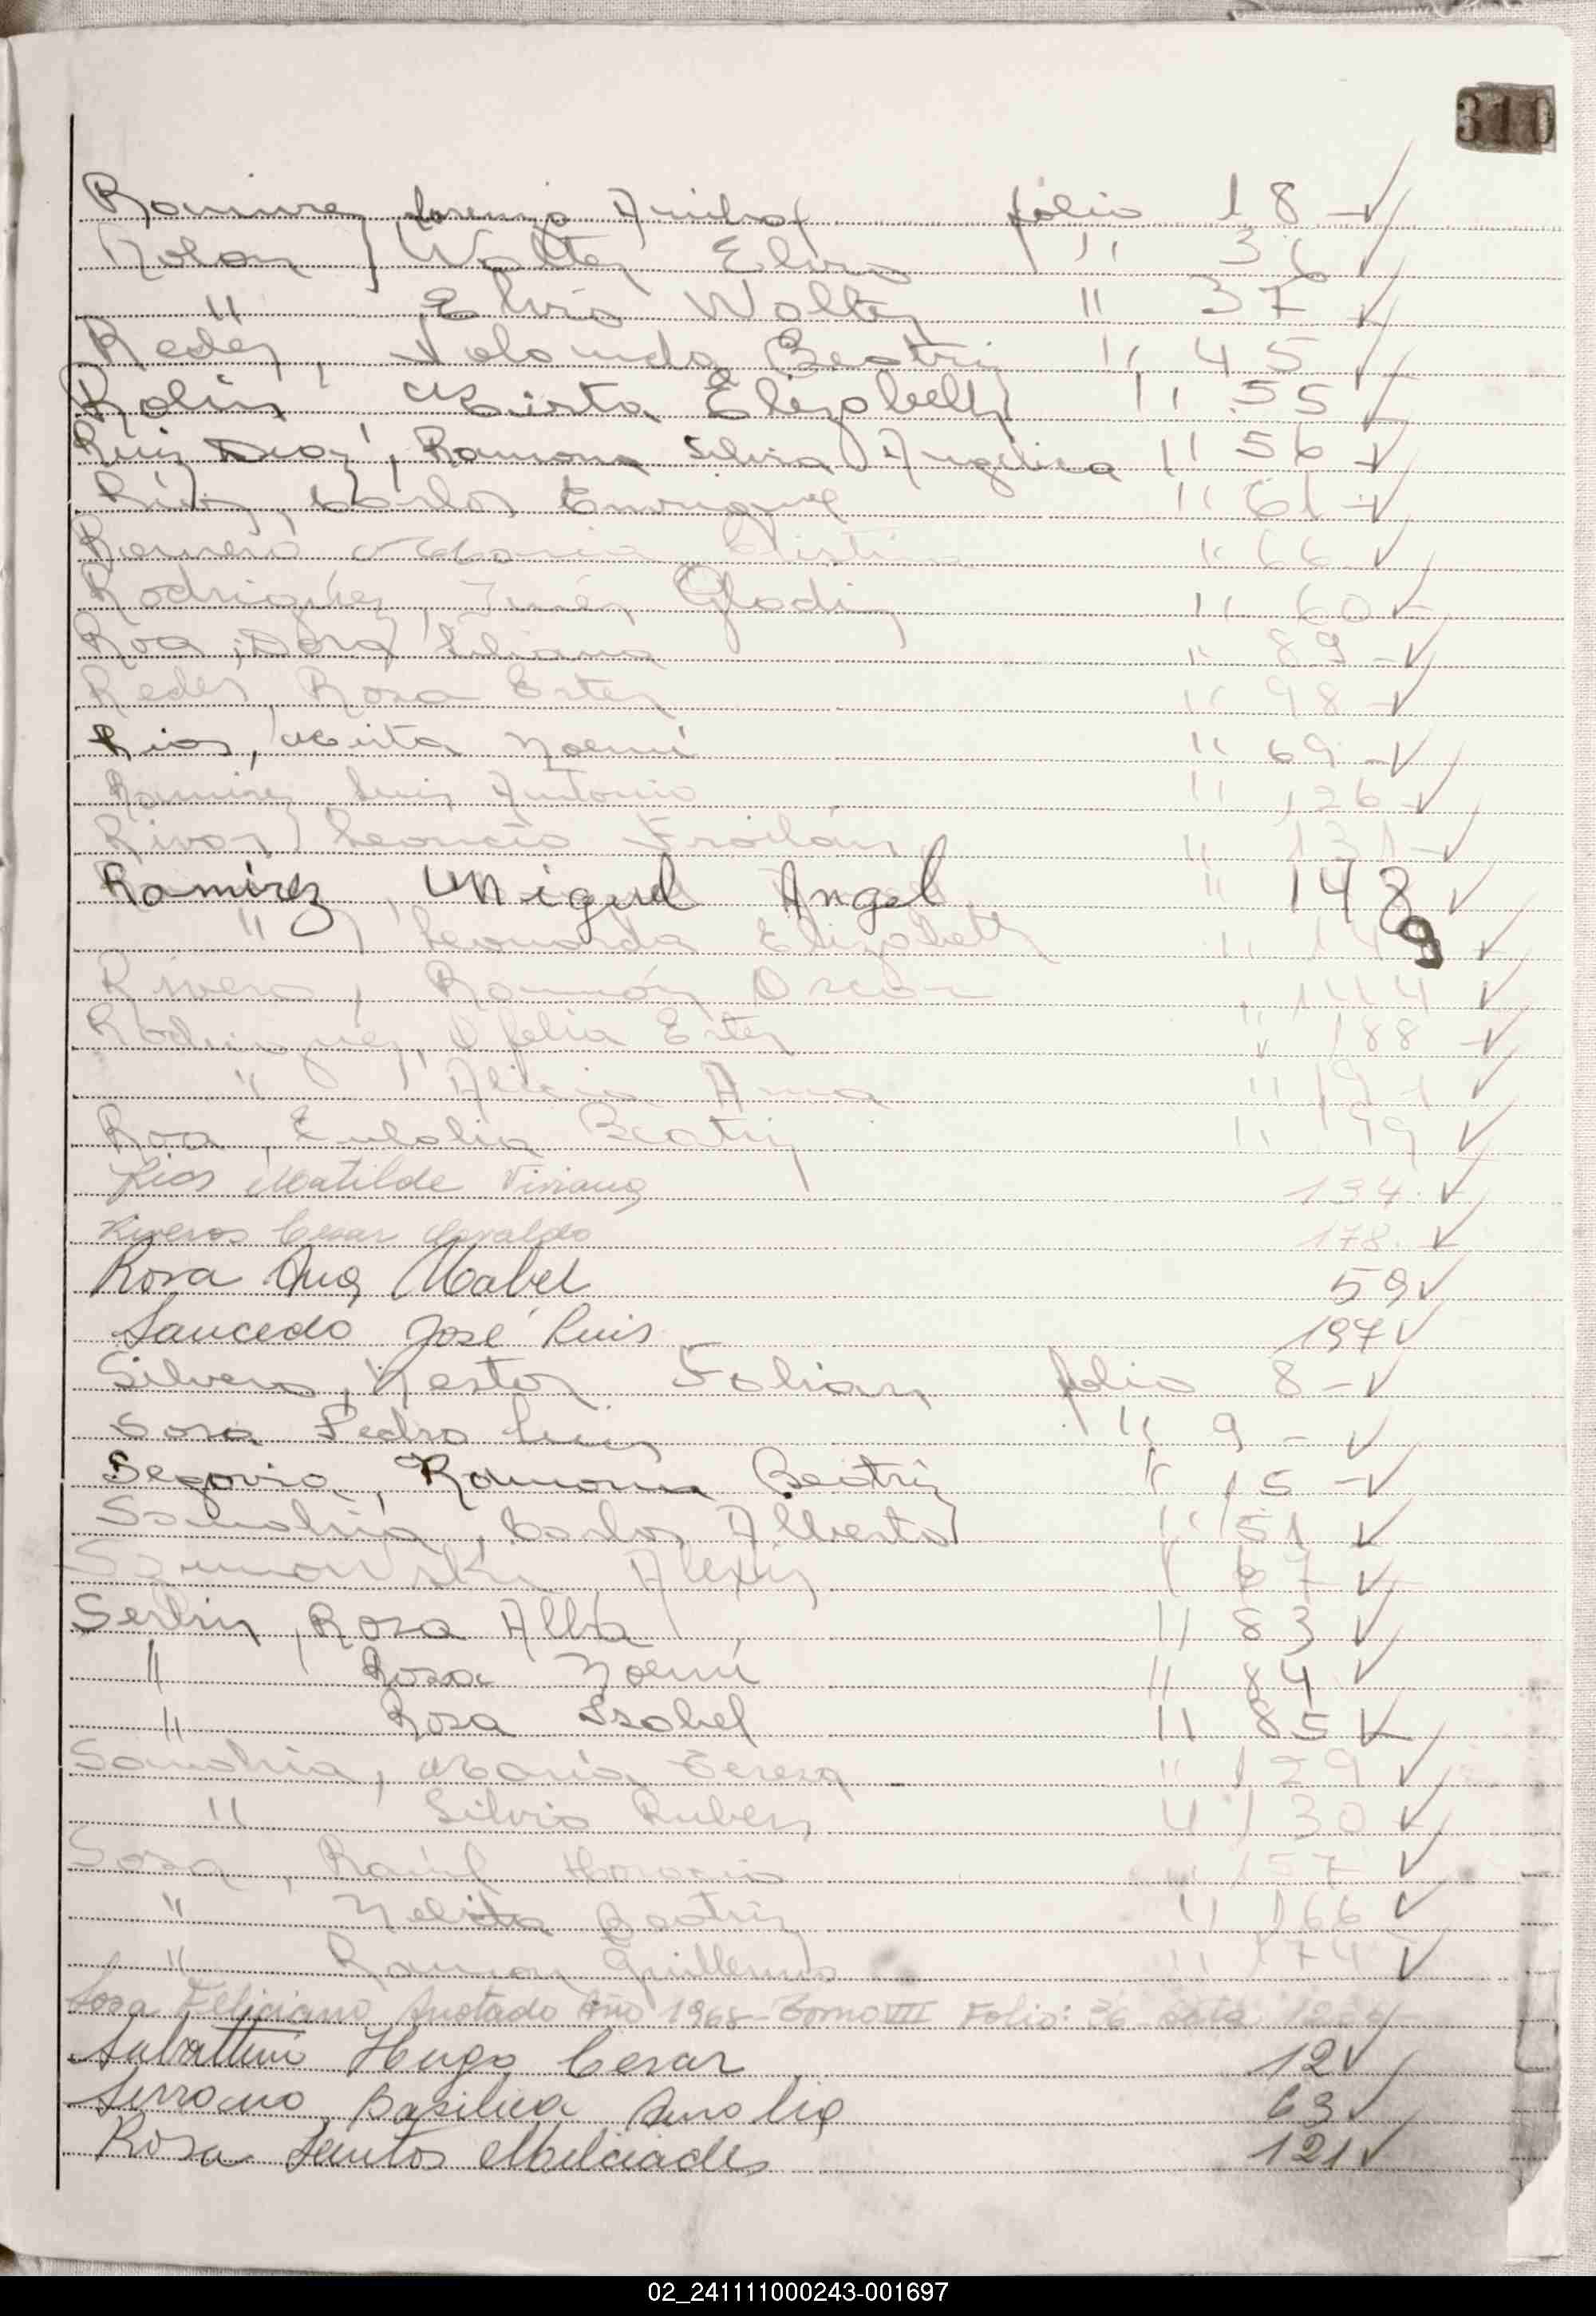 310
Ramirez, Lorenzo Aníbal folio 18 -
Rolon, Walter Elvio " 36
" Elvio Walter " 37
Reder, Yolanda Beatriz " 45
Rolin Mirta Elizabeth " 55
Ruiz Diaz, Ramona Silvia Angélica " 56 -
Carlos Enrique " 61 -
Romero Maria Cristina " 66
Rodriguez, Inés Gladiz " 60 -
Roa, Dora Liliana " 89 -
Reder, Rosa Ester " 98 -
Rios, Mirta Noemí " 69 -
Ramirez Luis Antonio " 126 -
Rivas, Leoncio Froilán " 131 -
Ramírez, Miguel Angel " 148
" , Leonarda Elizabeth " 149
Rivero, Ramón Oscar " 144
Rodriguez, Ofelia Ester " 188 -
" , Alicia Ana "
Roa, Eulalia Beatriz " 199
Rios Matilde Viviana 134.
Riveros Cesar Osvaldo 178.
Rosa Ana Mabel 59
Saucedo José Luis 197
Silvero, Nestor Fabian folio 8 -
Sosa Pedro Luis " 9 -
Segovia, Ramona Beatriz " 15 -
Sanabria, Carlos Alberto " 51
Alexis " 67
Serbin, Rosa Alba " 83
" Rosa Noemí " 84
" Rosa Isabel " 85
Sanabria, María Teresa " 129
" Silvio Ruben " 130
Sosa, Raúl Horacio " 157
" Nelida Beatriz " 166
" Ramon Guillermo " 174
Sosa Feliciano Anotado Año 1968 - Tomo VIII Folio: 36 Acta
Sabattini Hugo Cesar 12
Serrano, Basilica Amalia 63
Rosa Santos Milciades 121
02_241111000243-001697